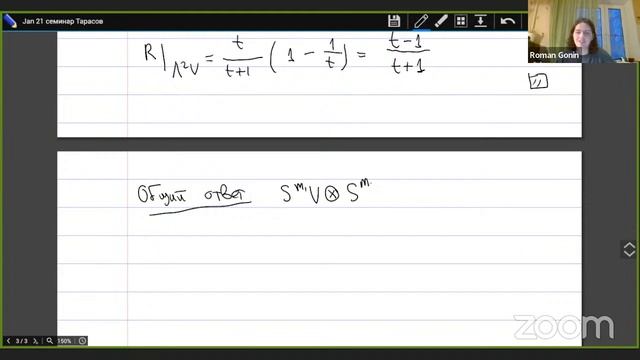 Jan 21 семинар Тарасов
R|_{Λ²V} = \frac{t}{t+1} (1 - \frac{1}{t}) = \frac{t-1}{t+1}
Roman Gonin
Общий ответ S^{m_1}V ⊗ S^{m}
3 / 3
150%
zoom